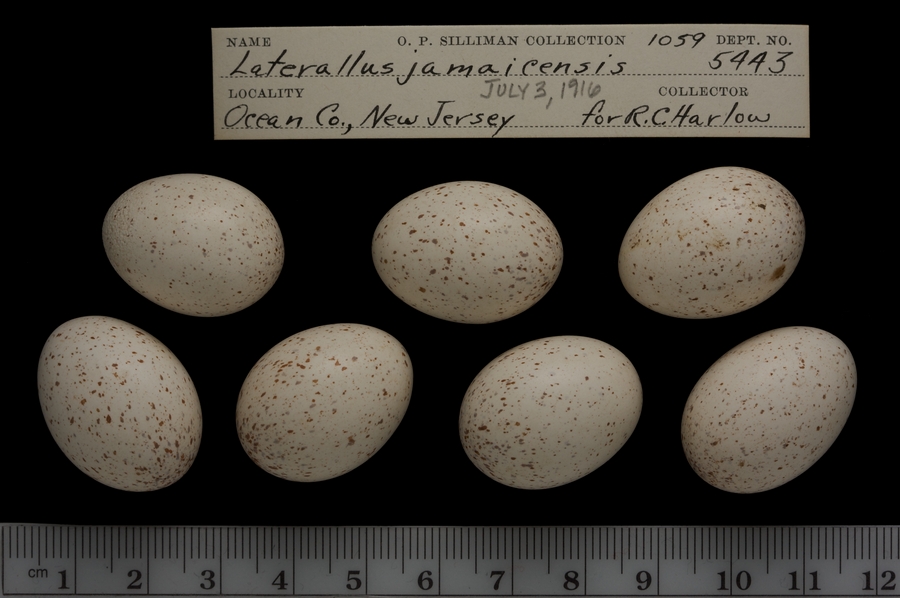 NAME O. P. SILLIMAN COLLECTION 1059 DEPT. NO.
Laterallus jamaicensis 5443
LOCALITY JULY 3, 1916 COLLECTOR
Ocean Co., New Jersey for R.C. Harlow
cm 1 2 3 4 5 6 7 8 9 10 11 12